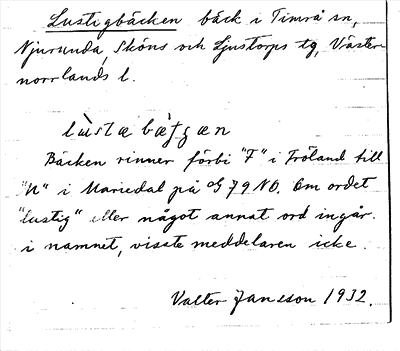 Lustigbäcken bäck i Timrå sn,
Njurunda, Sköns och Ljustorps tg, Väster-
norrlands l.
lùstabèʃʒən
Bäcken rinner förbi "F" i Fröland till
"N" i Mariedal på 79 NO. Om ordet
"lustig" eller något annat ord ingår
i namnet, visste meddelaren icke.
Valter Jansson 1932.